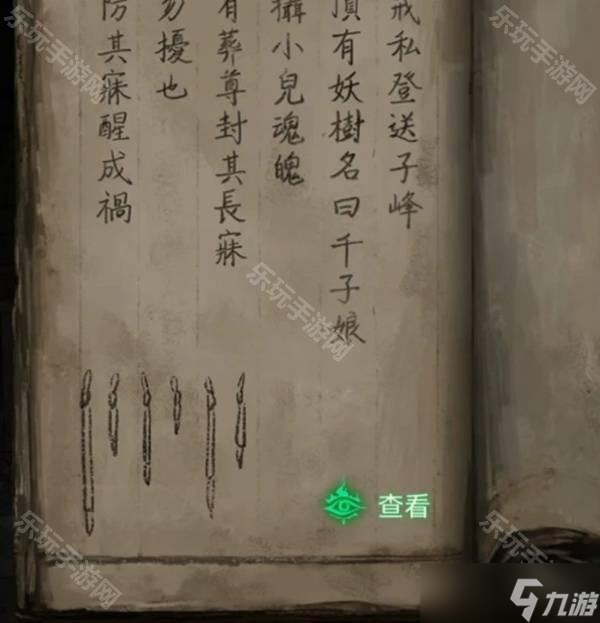 戒私登送子峰
頂有妖樹名曰千子娘
攝小兒魂魄
有葬尊封其長寐
勿擾也
防其寐醒成禍
查看
乐玩手游网
乐玩手游网
乐玩手游网
乐玩手游网
乐玩手游网
九游